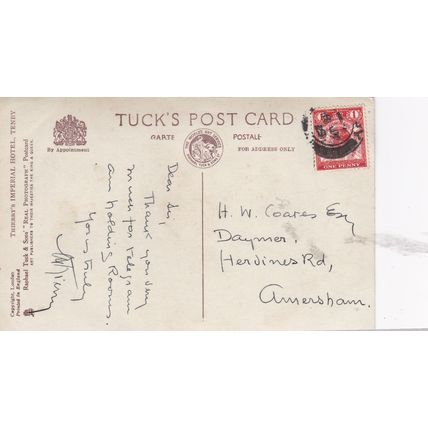 TUCK'S POST CARD
CARTE POSTALE
By Appointment
FOR ADDRESS ONLY
THIERRY'S IMPERIAL HOTEL, TENBY
Raphael Tuck & Sons' "REAL PHOTOGRAPH" Postcard
ART PUBLISHERS TO THEIR MAJESTIES THE KING & QUEEN.
Copyright, London
Printed in England
Dear Sir,
Thank you very
much for telegram
am holding Rooms.
Yours truly
H. W. Coates Esq
Daymer,
Hervines Rd,
Amersham.
1 1
ONE PENNY